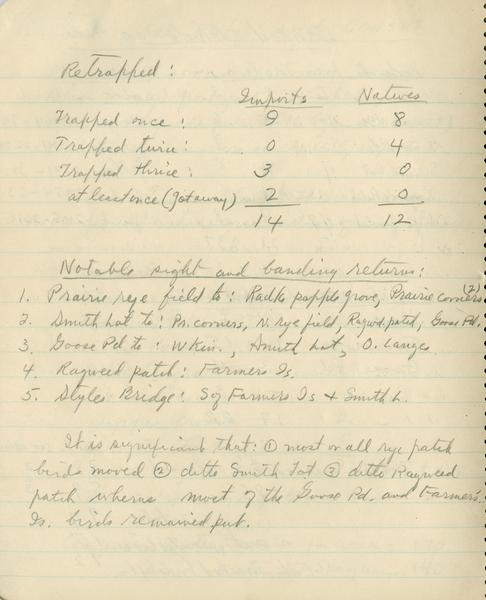 Retrapped:
Imports Natives
Trapped once: 9 8
Trapped twice: 0 4
Trapped thrice: 3 0
at least once (got away) 2 0
14 12
Notable sight and banding returns:
1. Prairie rye field to: Radke popple grove, Prairie corners (2)
2. Smith Lot to: Pr. corners, N. rye field, Ragwd. patch, Goose Pd.
3. Goose Pd to: W Kin., Smith Lot, O. Langes
4. Ragweed patch: Farmers Is.
5. Styles Bridge: S of Farmers Is & Smith L.
It is significant that: ① most or all rye patch
birds moved ② ditto Smith Lot ③ ditto Ragweed
patch wheras most of the Goose Pd. and Farmers
Is. birds remained put.